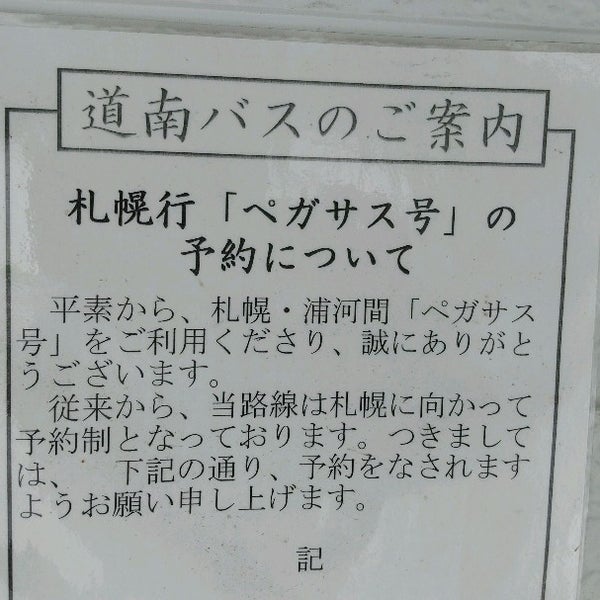 道南バスのご案内
札幌行「ペガサス号」の
予約について
平素から、札幌・浦河間「ペガサス
号」をご利用くださり、誠にありがと
うございます。
従来から、当路線は札幌に向かって
予約制となっております。つきまして
は、　下記の通り、予約をなされます
ようお願い申し上げます。
記